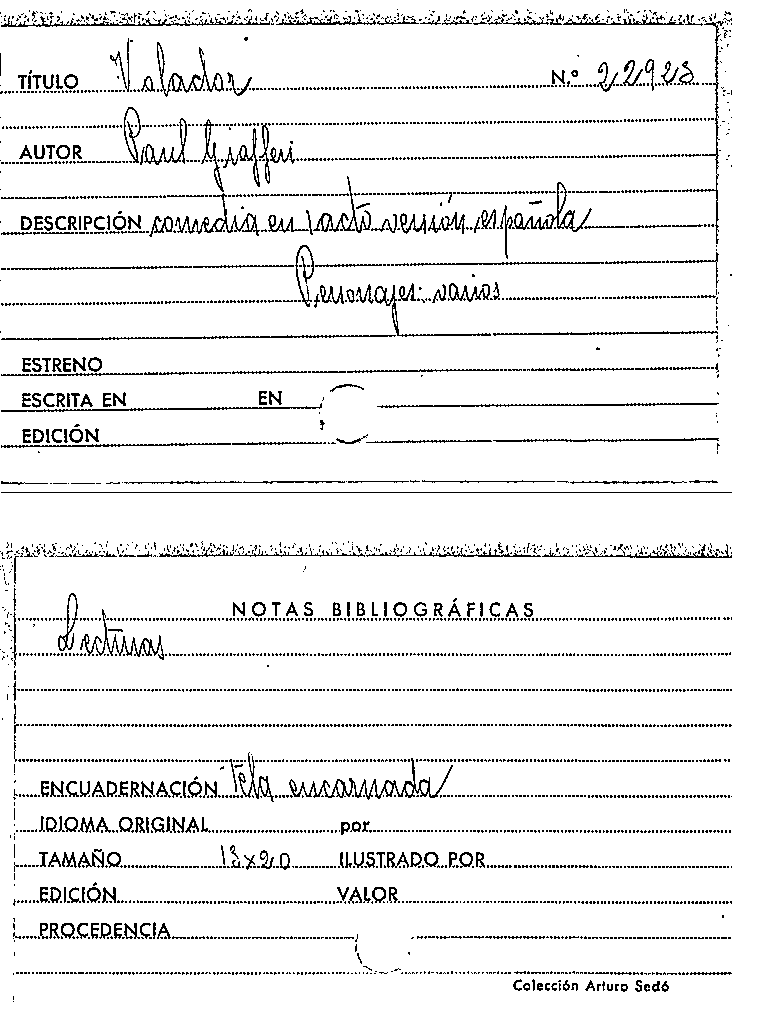 TÍTULO Valador N.º 22923
AUTOR Paul Giafferi
DESCRIPCIÓN comedia en 1 acto versión española
Personajes: varios
ESTRENO
ESCRITA EN EN
EDICIÓN
NOTAS BIBLIOGRÁFICAS
Lecturas
ENCUADERNACIÓN Tela encarnada
IDIOMA ORIGINAL por
TAMAÑO 13x20 ILUSTRADO POR
EDICIÓN VALOR
PROCEDENCIA
Colección Arturo Sedó